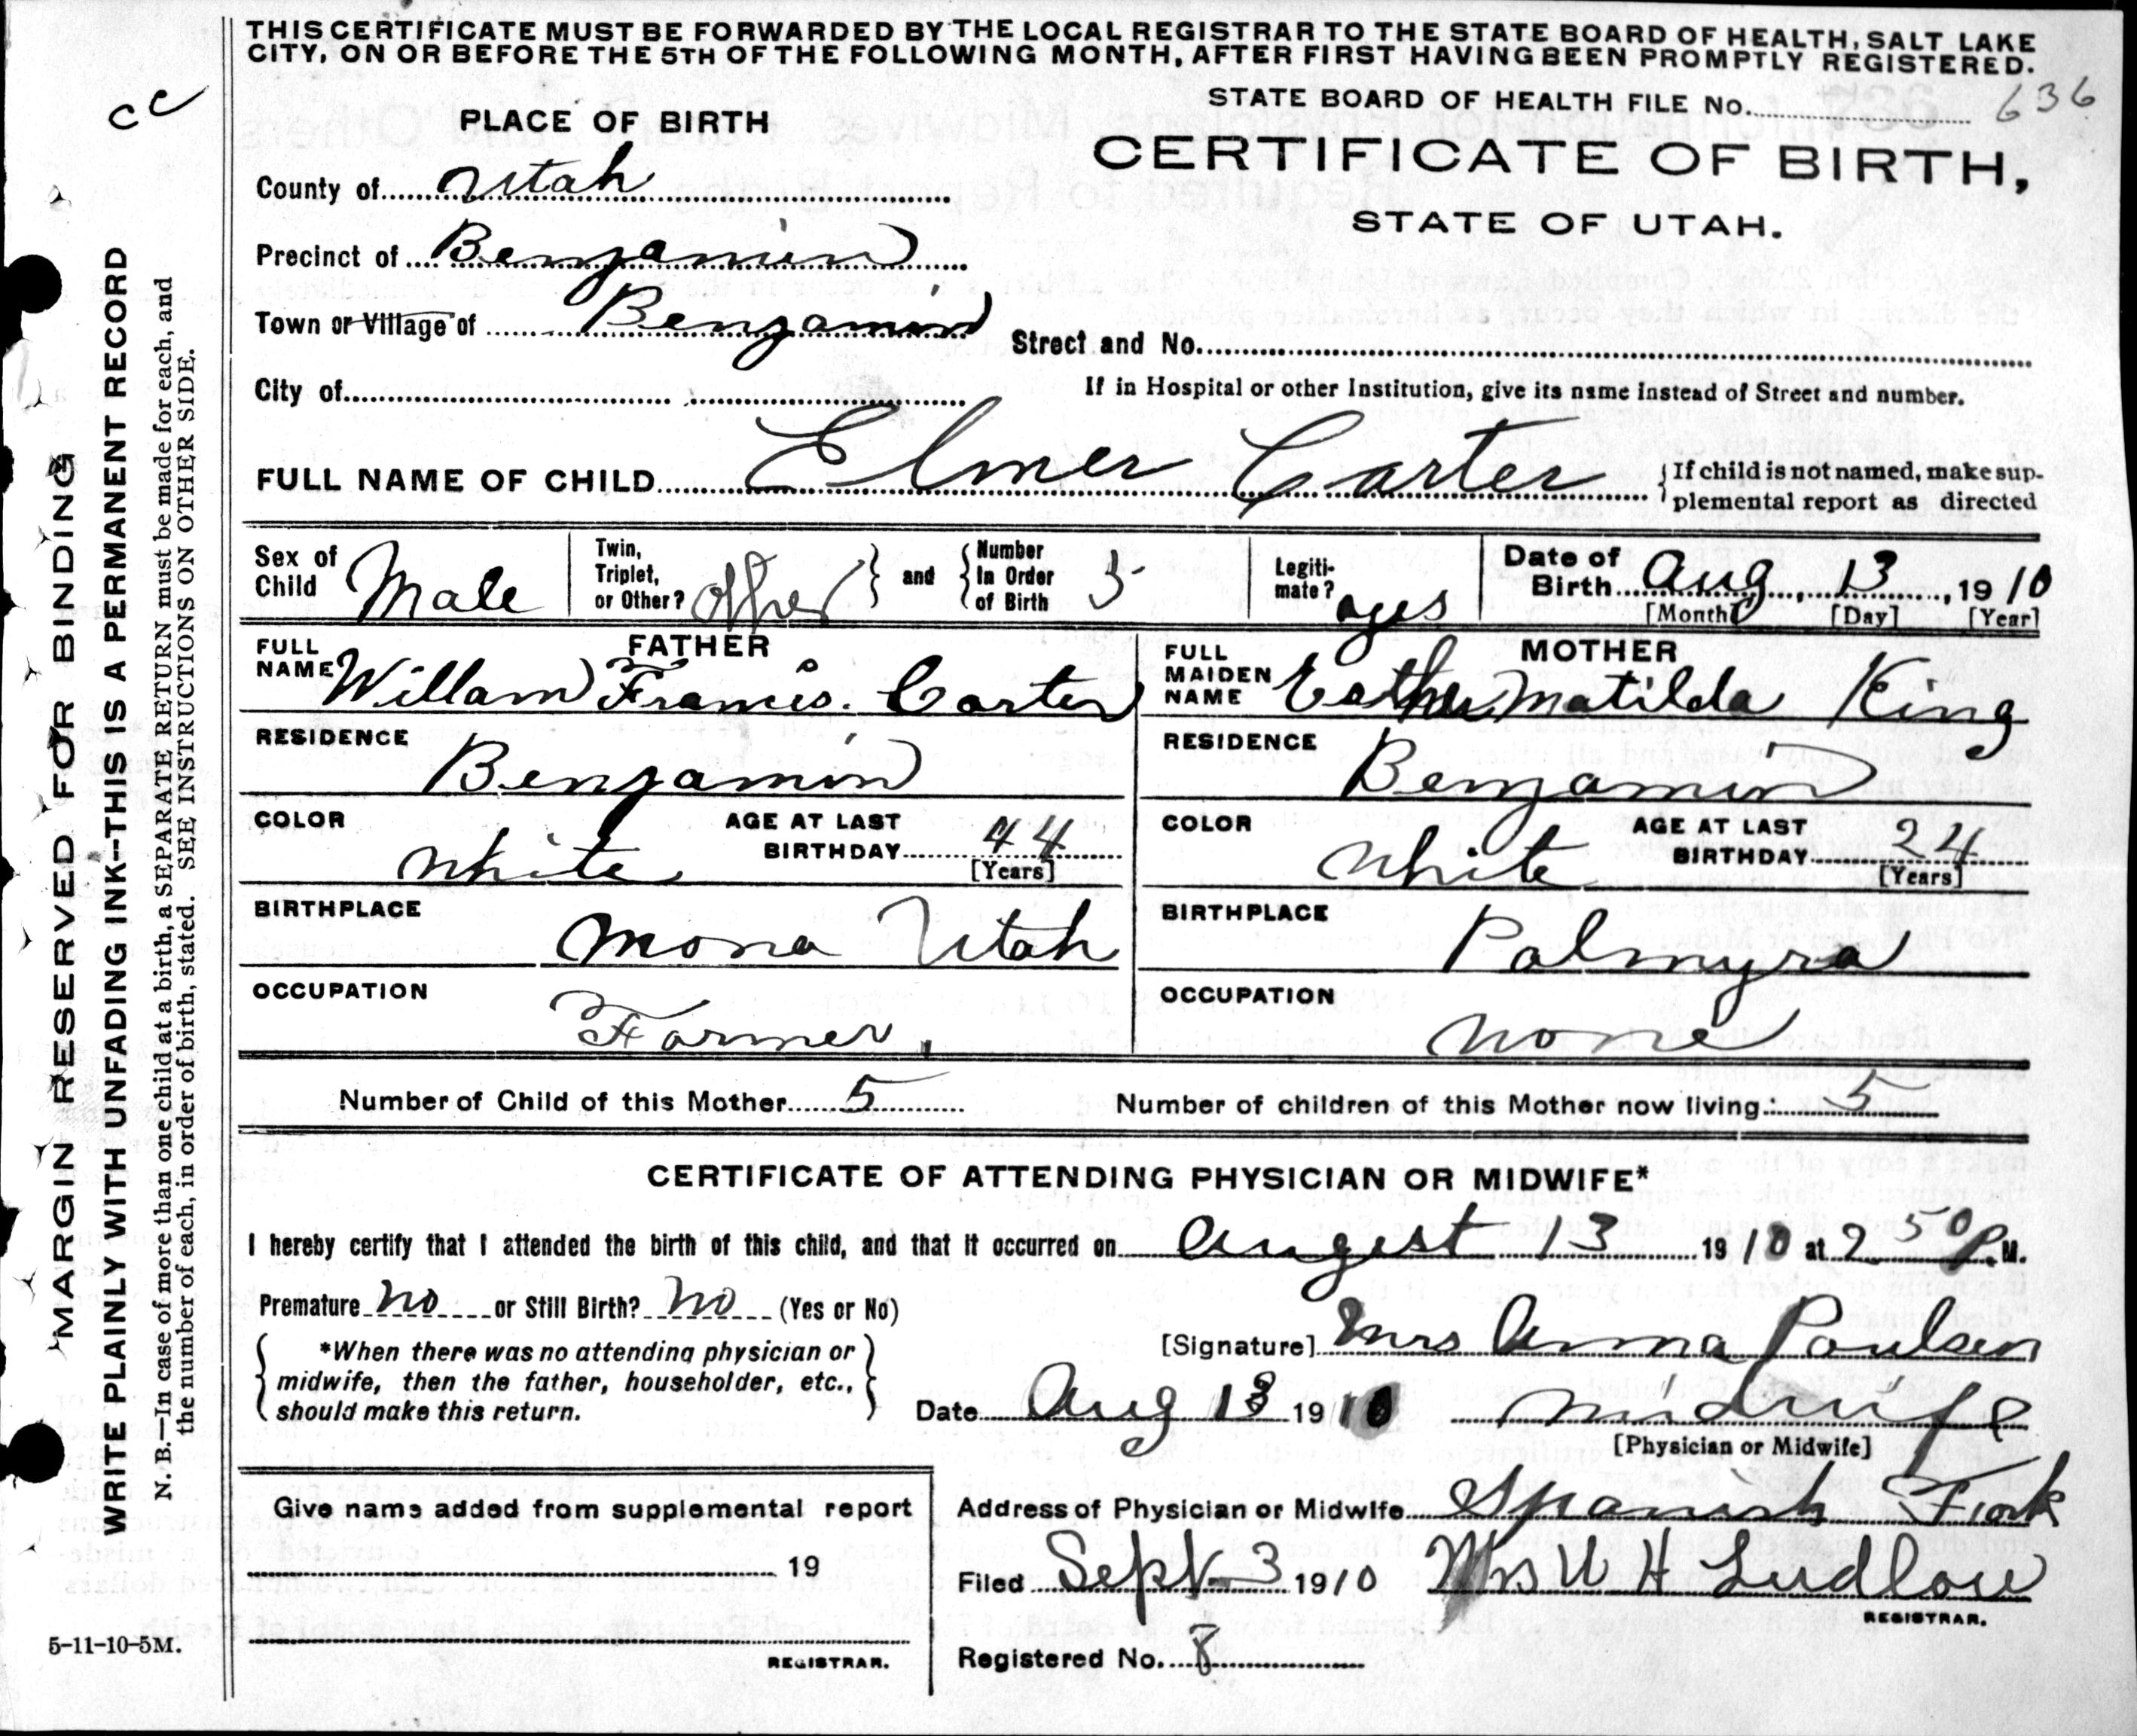 THIS CERTIFICATE MUST BE FORWARDED BY THE LOCAL REGISTRAR TO THE STATE BOARD OF HEALTH, SALT LAKE
CITY, ON OR BEFORE THE 5TH OF THE FOLLOWING MONTH, AFTER FIRST HAVING BEEN PROMPTLY REGISTERED.
cc
STATE BOARD OF HEALTH FILE No. 636
PLACE OF BIRTH
CERTIFICATE OF BIRTH,
STATE OF UTAH.
County of Utah
Precinct of Benjamin
Town or Village of Benjamin
Street and No.
City of
If in Hospital or other Institution, give its name instead of Street and number.
FULL NAME OF CHILD Elmer Carter {If child is not named, make sup-
plemental report as directed
Sex of Child Male
Twin, Triplet, or Other? other } and { Number In Order of Birth 5
Legiti-mate? yes
Date of Birth Aug, 13, 1910
[Month] [Day] [Year]
FATHER
FULL NAME Willam Francis. Carter
RESIDENCE
Benjamin
COLOR
White
AGE AT LAST BIRTHDAY 44
[Years]
BIRTHPLACE
Mona Utah
OCCUPATION
Farmer,
MOTHER
FULL MAIDEN NAME Esther Matilda King
RESIDENCE
Benjamin
COLOR
White
AGE AT LAST BIRTHDAY 24
[Years]
BIRTHPLACE
Palmyra
OCCUPATION
None
Number of Child of this Mother 5
Number of children of this Mother now living: 5
CERTIFICATE OF ATTENDING PHYSICIAN OR MIDWIFE*
I hereby certify that I attended the birth of this child, and that it occurred on Augest 13 1910 at 2 50 P.M.
Premature no or Still Birth? No (Yes or No)
{ *When there was no attending physician or }
midwife, then the father, householder, etc.,
should make this return.
[Signature] Mrs Anna Poulsen
Date Aug 13 1910 midwife
[Physician or Midwife]
Give name added from supplemental report
19
REGISTRAR.
Address of Physician or Midwife Spanish Fork
Filed Sept 3 1910 Mrs W H Ludlow
REGISTRAR.
Registered No. 8
5-11-10-5M.
MARGIN RESERVED FOR BINDING
WRITE PLAINLY WITH UNFADING INK--THIS IS A PERMANENT RECORD
N. B.—In case of more than one child at a birth, a SEPARATE RETURN must be made for each, and
the number of each, in order of birth, stated. SEE INSTRUCTIONS ON OTHER SIDE.